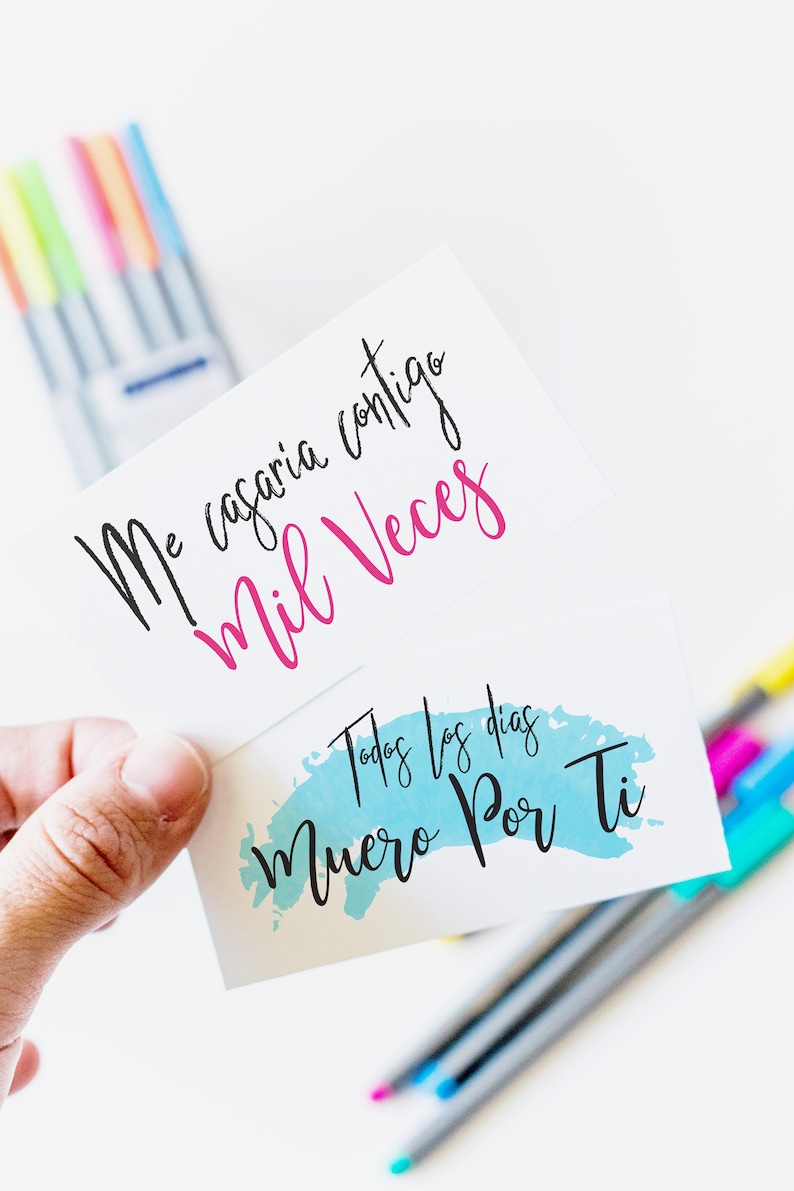 Me casaria contigo
Mil Veces
Todos los dias
Muero Por Ti